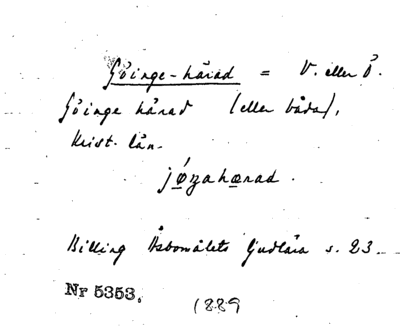 Göinge-härad = V. eller Ö.
Göinge härad (eller båda),
Krist. län.
jöŋahærad.
Billing Åsbomålets ljudlära s. 23.
Nr 5353.
1889